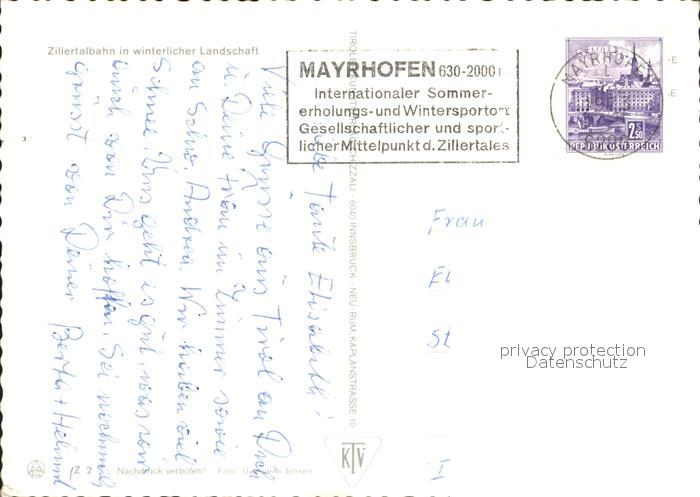 Zillertalbahn in winterlicher Landschaft
MAYRHOFEN 630-2000
Internationaler Sommer-
erholungs- und Wintersportort
Gesellschaftlicher und sport-
licher Mittelpunkt d. Zillertales
LINZ
MAYRHOFEN
2.50
REPUBLIK ÖSTERREICH
Liebe Tante Elisabeth!
Viele Grüsse aus Tirol an Dich
u. Deine Frau im Zimmer sowie
an Schw. Andrea. Wir haben viel
Schnee. Uns geht es gut, was wir
auch von Dir hoffen. Sei nochmals
gegrüsst von Deiner Berta + Helmut
6040 INNSBRUCK - NEU-RUM, KAPLANSTRASSE 10
Frau
El
St
I
privacy protection
Datenschutz
KTV
Z 2
Nachdruck verboten!
Foto: Jensen